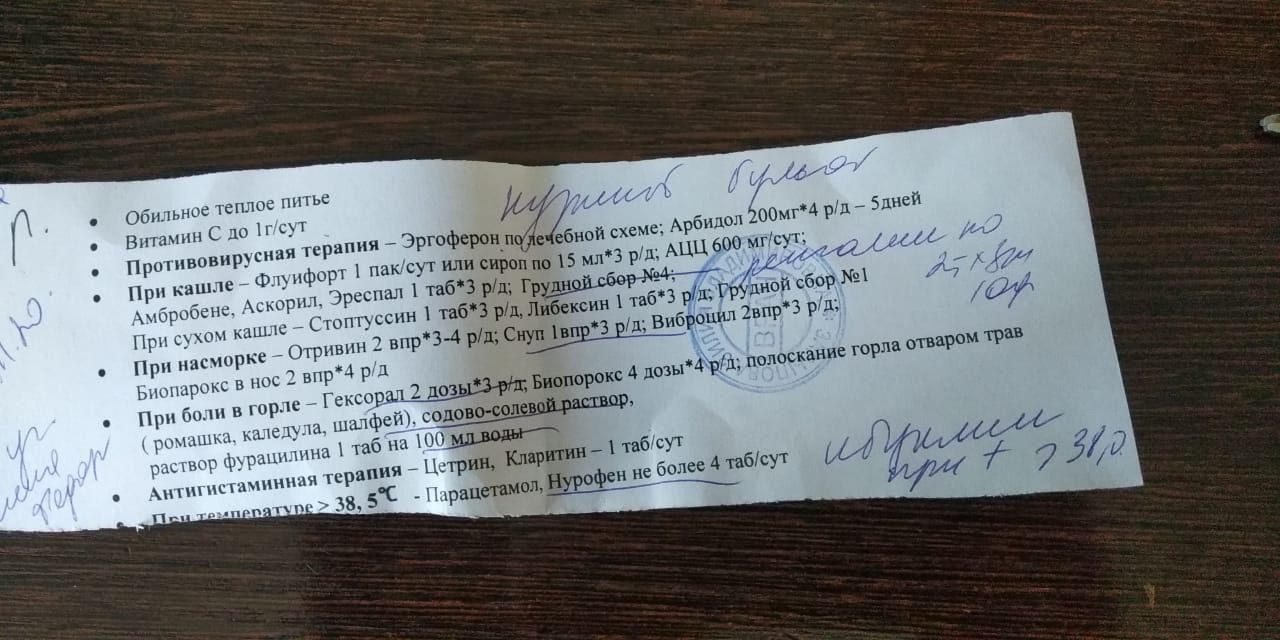 Обильное теплое питье
Витамин С до 1г/сут
Противовирусная терапия – Эргоферон по лечебной схеме; Арбидол 200мг*4 р/д – 5дней
При кашле – Флуифорт 1 пак/сут или сироп по 15 мл*3 р/д; АЦЦ 600 мг/сут;
Амбробене, Аскорил, Эреспал 1 таб*3 р/д; Грудной сбор №4;
При сухом кашле – Стоптуссин 1 таб*3 р/д, Либексин 1 таб*3 р/д; Грудной сбор №1
При насморке – Отривин 2 впр*3-4 р/д; Снуп 1впр*3 р/д; Виброцил 2впр*3 р/д;
Биопарокс в нос 2 впр*4 р/д
При боли в горле – Гексорал 2 дозы*3 р/д; Биопорокс 4 дозы*4 р/д; полоскание горла отваром трав
( ромашка, каледула, шалфей), содово-солевой раствор,
раствор фурацилина 1 таб на 100 мл воды
Антигистаминная терапия – Цетрин, Кларитин – 1 таб/сут
При температуре > 38, 5℃ - Парацетамол, Нурофен не более 4 таб/сут
при t > 38,0